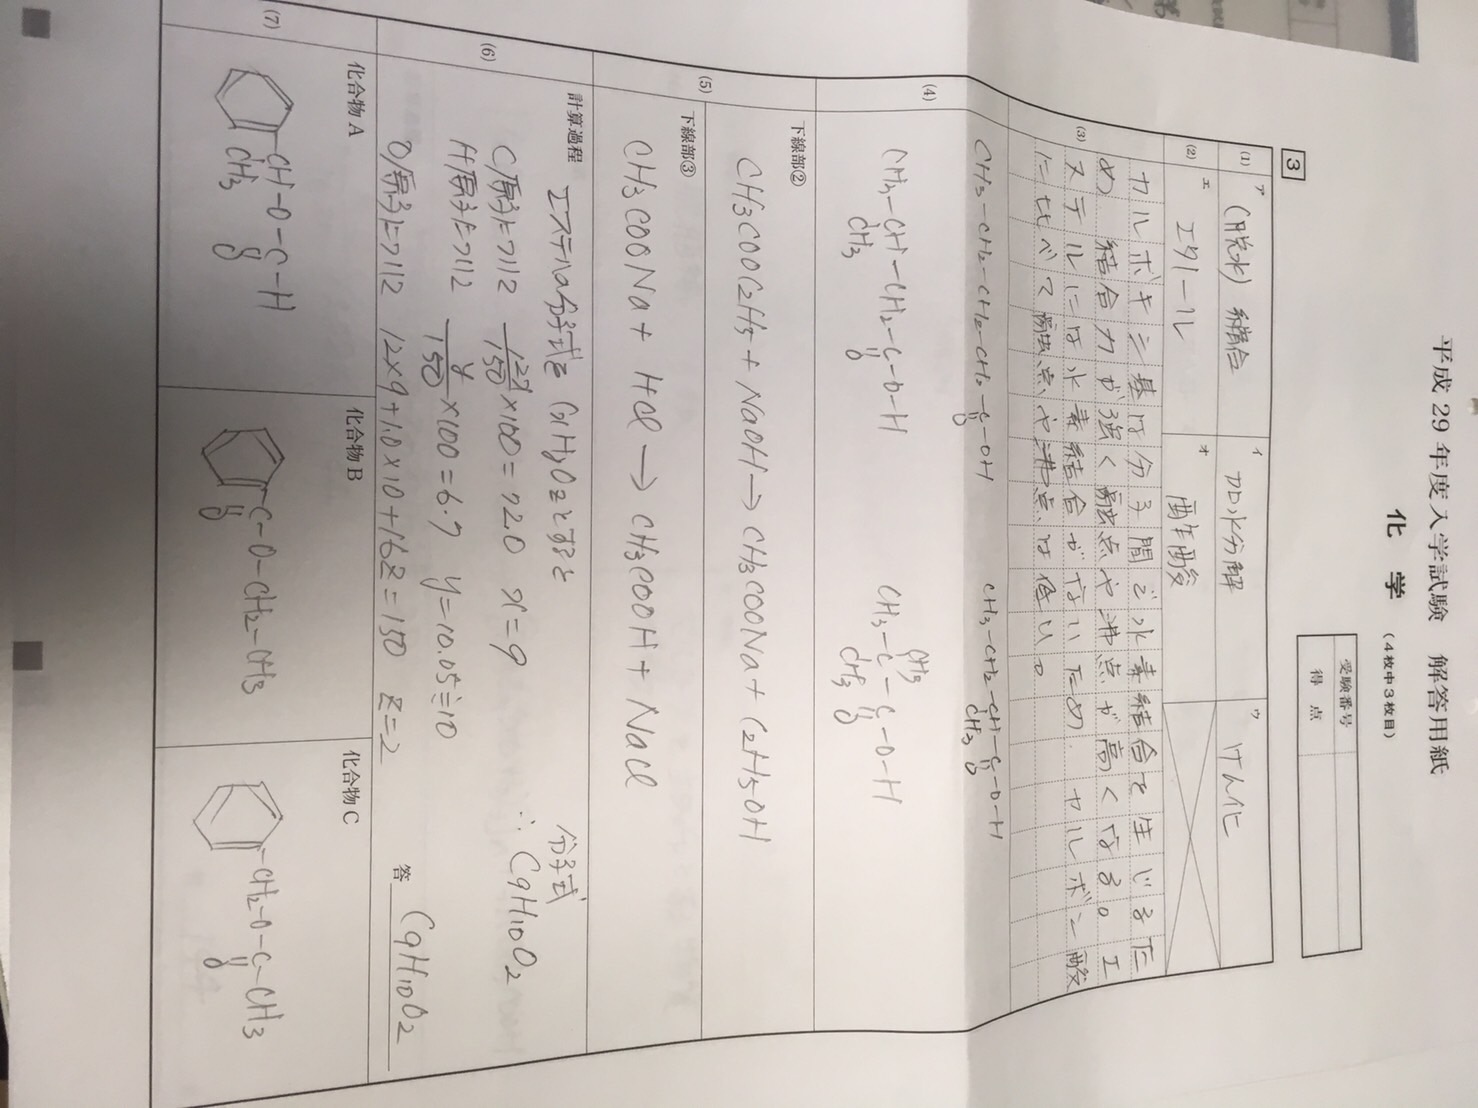 平成29年度入学試験 解答用紙
化学 (4枚中3枚目)
受験番号
得点
3
(1) ア (脱水)縮合 イ 加水分解 ウ けん化
(2) エ エタノール オ 酢酸
(3) カルボキシ基は分子間で水素結合を生じるた
め 結合力が強く融点や沸点が高くなる。エ
ステルには水素結合がないため カルボン酸
に比べて融点や沸点は低い。
(4) CH3-CH2-CH2-CH2-C-OH
O
CH3-CH2-CH-C-O-H
CH3 O
CH3-CH-CH2-C-O-H
CH3 O
CH3
CH3-C-C-O-H
CH3 O
(5) 下線部②
CH3COOC2H5 + NaOH → CH3COONa + C2H5OH
下線部③
CH3COONa + HCl → CH3COOH + NaCl
(6) 計算過程
エステルの分子式を CxHyOzとすると
C原子について 12x/150 ×100 = 72.0 x=9
H原子について y/150 ×100 = 6.7 y=10.05≒10
O原子について 12×9+1.0×10+16z=150 z=2
分子式
∴ C9H10O2
答 C9H10O2
(7) 化合物A
CH-O-C-H
CH3 O
化合物B
C-O-CH2-CH3
O
化合物C
CH2-O-C-CH3
O